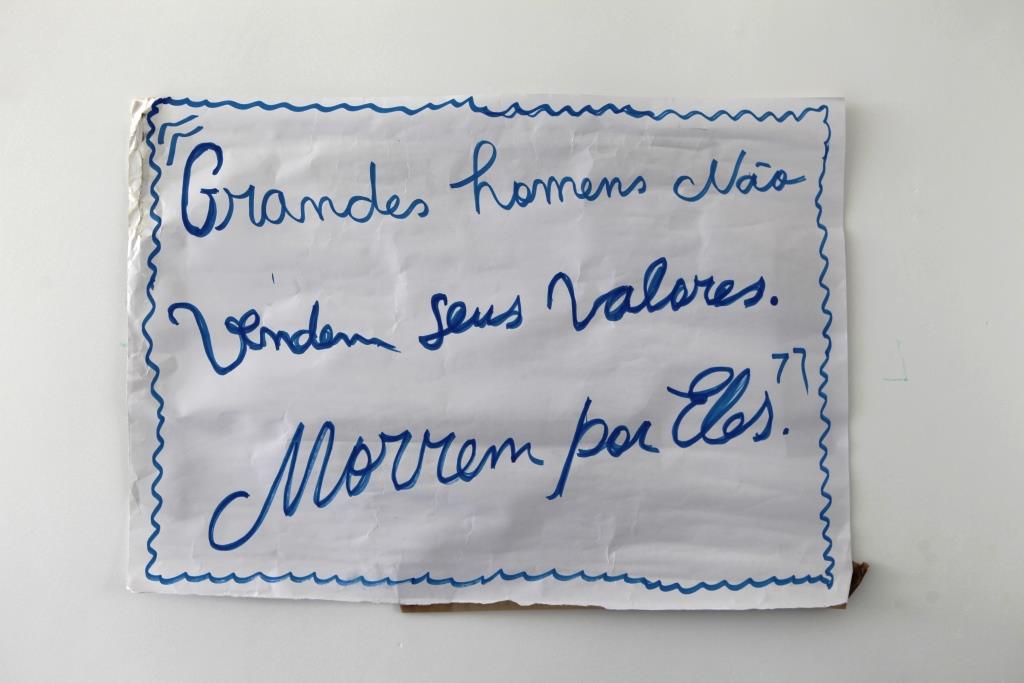 "Grandes homens Não
Vendem seus Valores.
Morrem por Eles."